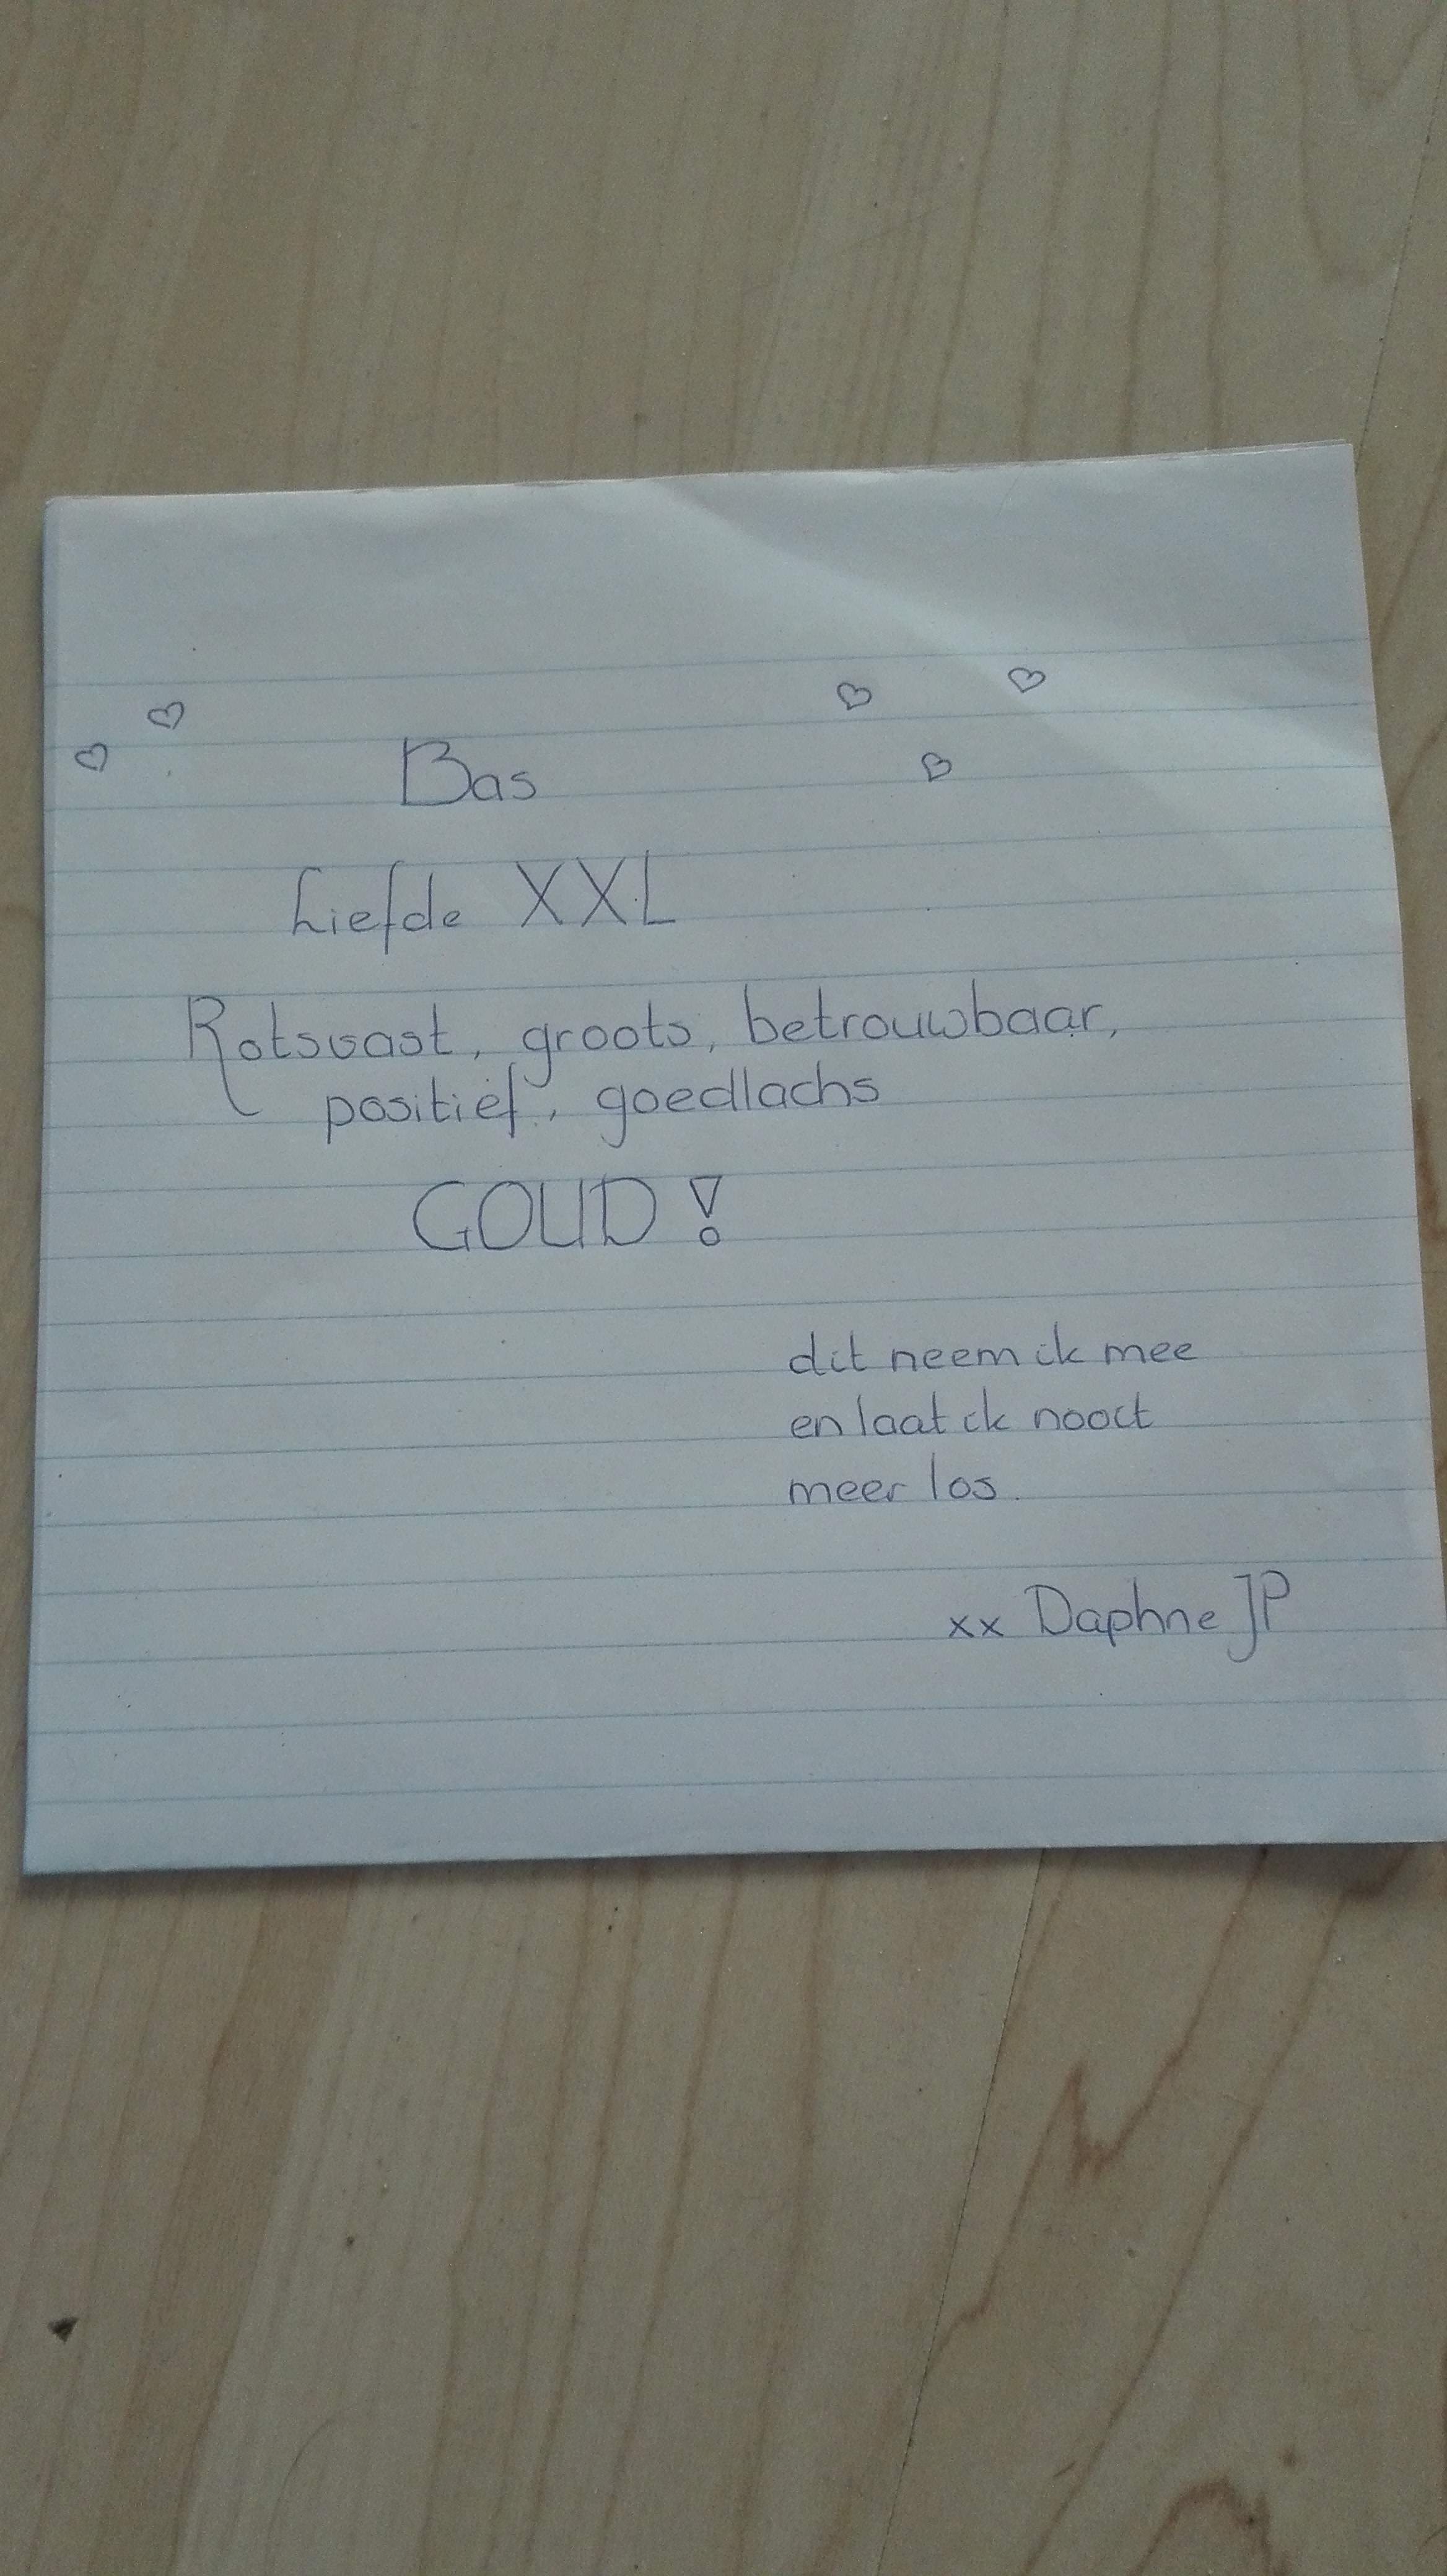 Bas
Liefde XXL
Rotsvast, groots, betrouwbaar,
positief, goedlachs
GOUD!
dit neem ik mee
en laat ik nooit
meer los.
xx Daphne JP